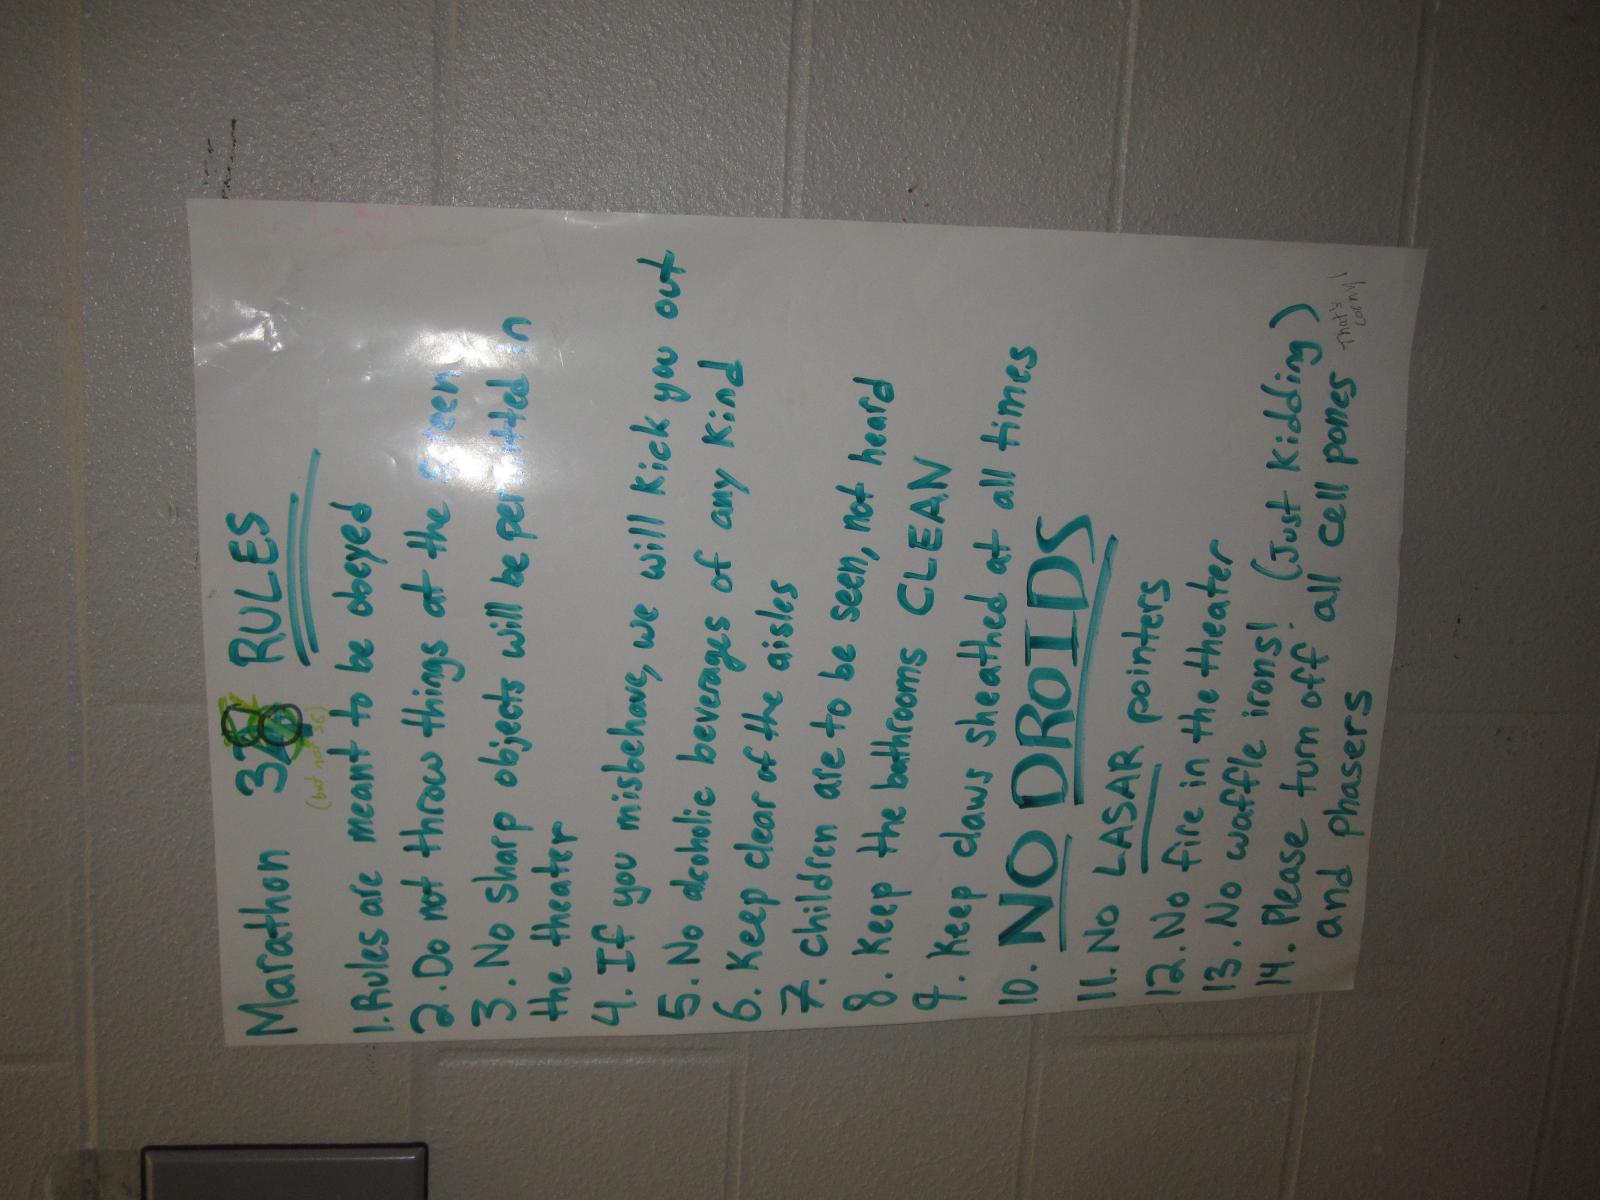 Marathon 38 RULES
(but not 36)
1. Rules are meant to be obeyed
2. Do not throw things at the screen
3. No sharp objects will be permitted in
the theater
4. If you misbehave, we will kick you out
5. No alcoholic beverages of any kind
6. Keep clear of the aisles
7. Children are to be seen, not heard
8. Keep the bathrooms CLEAN
9. Keep claws sheathed at all times
10. NO DROIDS
11. No LASAR pointers
12. No fire in the theater
13. No waffle irons! (Just kidding)
14. Please turn off all cell pones
and phasers
That's
corny!